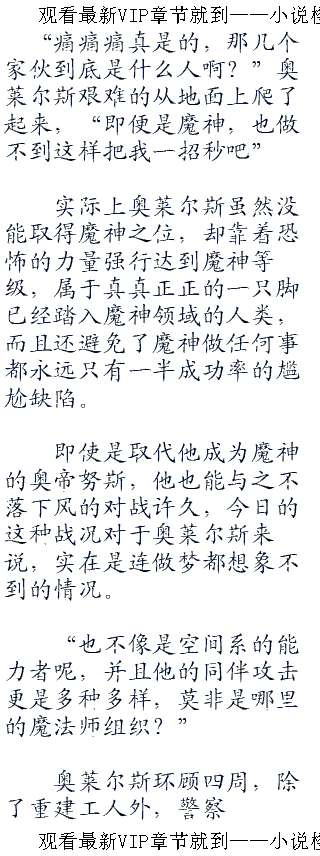 观看最新VIP章节就到——小说检
“痛痛痛真是的，那几个
家伙到底是什么人啊？”奥
莱尔斯艰难的从地面上爬了
起来，“即便是魔神，也做
不到这样把我一招秒吧”
实际上奥莱尔斯虽然没
能取得魔神之位，却靠着恐
怖的力量强行达到魔神等
级，属于真真正正的一只脚
已经踏入魔神领域的人类，
而且还避免了魔神做任何事
都永远只有一半成功率的尴
尬缺陷。
即使是取代他成为魔神
的奥帝努斯，他也能与之不
落下风的对战许久，今日的
这种战况对于奥莱尔斯来
说，实在是连做梦都想象不
到的情况。
“也不像是空间系的能
力者呢，并且他的同伴攻击
更是多种多样，莫非是哪里
的魔法师组织？”
奥莱尔斯环顾四周，除
了重建工人外，警察
观看最新VIP章节就到——小说检